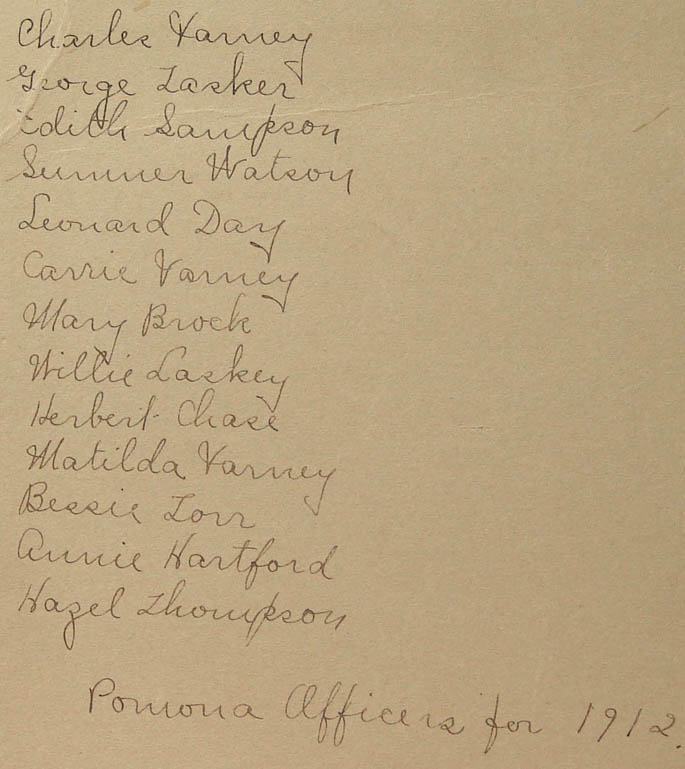 Charles Varney
George Tasker
Edith Sampson
Sumner Watson
Leonard Day
Carrie Varney
Mary Brock
Willie Laskey
Herbert Chase
Matilda Varney
Bessie Torr
Annie Hartford
Hazel Thompson
Pomona Officers for 1912.